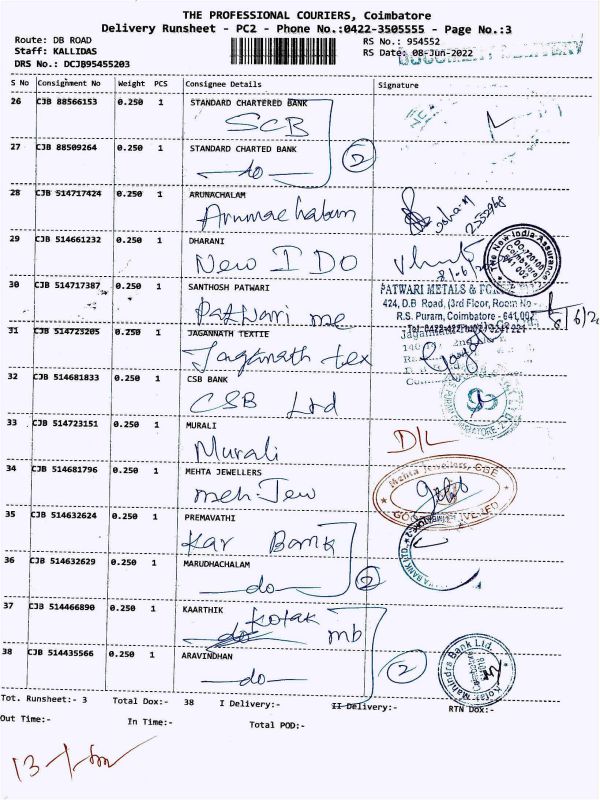 THE PROFESSIONAL COURIERS, Coimbatore
Delivery Runsheet - PC2 - Phone No.:0422-3505555 - Page No.:3
Route: DB ROAD
RS No.: 954552
Staff: KALLIDAS
RS Date: 08-Jun-2022
DRS No.: DCJB95455203
S No Consignment No Weight PCS Consignee Details Signature
26 CJB 88566153 0.250 1 STANDARD CHARTERED BANK
SCB
27 CJB 88509264 0.250 1 STANDARD CHARTED BANK
do 2
28 CJB 514717424 0.250 1 ARUNACHALAM
Arunachalam
29 CJB 514661232 0.250 1 DHARANI
New I DO
The New India Assurance
30 CJB 514717387 0.250 1 SANTHOSH PATWARI
Patwari me
PATWARI METALS &
424, D.B Road, (3rd Floor, Room No
R.S. Puram, Coimbatore - 641 002
31 CJB 514723205 0.250 1 JAGANNATH TEXTIE
Jaganath tex
32 CJB 514681833 0.250 1 CSB BANK
CSB Ltd
33 CJB 514723151 0.250 1 MURALI
Murali D/L
34 CJB 514681796 0.250 1 MEHTA JEWELLERS
meh Jew
Mehta Jewellers, CBE
35 CJB 514632624 0.250 1 PREMAVATHI
Kar Bank
36 CJB 514632629 0.250 1 MARUDHACHALAM
do 2
37 CJB 514466890 0.250 1 KAARTHIK
Kotak mb
38 CJB 514435566 0.250 1 ARAVINDHAN
do 2
Kotak Mahindra Bank Ltd.
Tot. Runsheet:- 3 Total Dox:- 38 I Delivery:- II Delivery:- RTN Dox:-
Out Time:- In Time:- Total POD:-